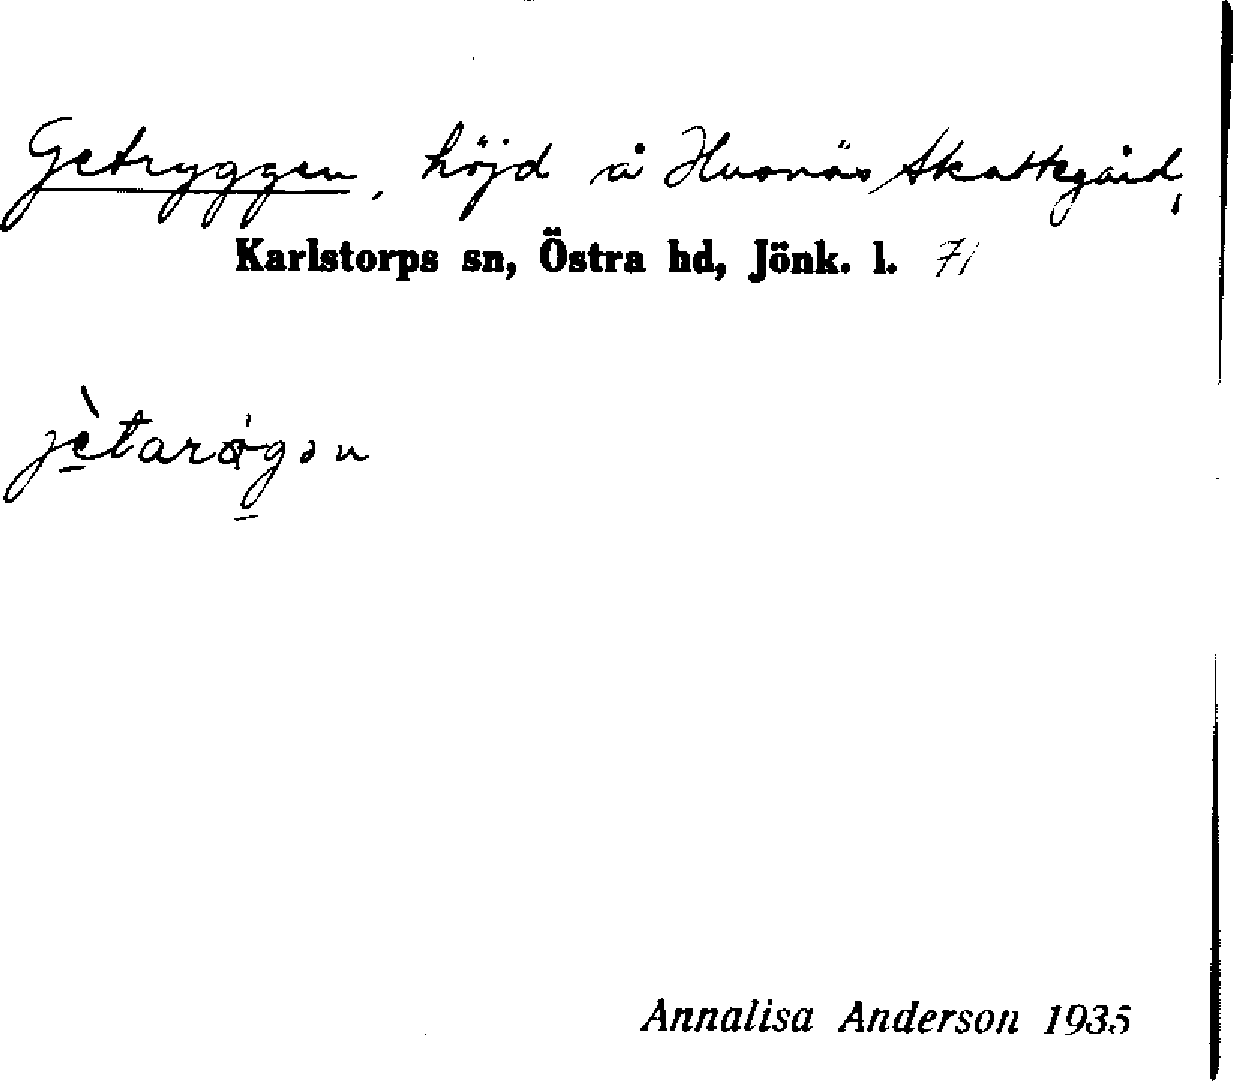 Getryggen, höjd å Husnäs Skattegård,
Karlstorps sn, Östra hd, Jönk. l. 71
jètarøgən
Annalisa Anderson 1935